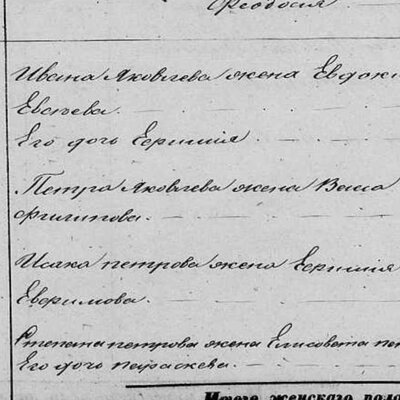 Феодосия
Ивана Яковлева жена Евдоки
Евсѣева.
Его дочь Ефимия
Петра Яковлева жена Васса
Филипова.
Исака петрова жена Ефимия
Евфимова.
Степана петрова жена Елисавета пе
Его дочь параскева.
Итого женскаго пола